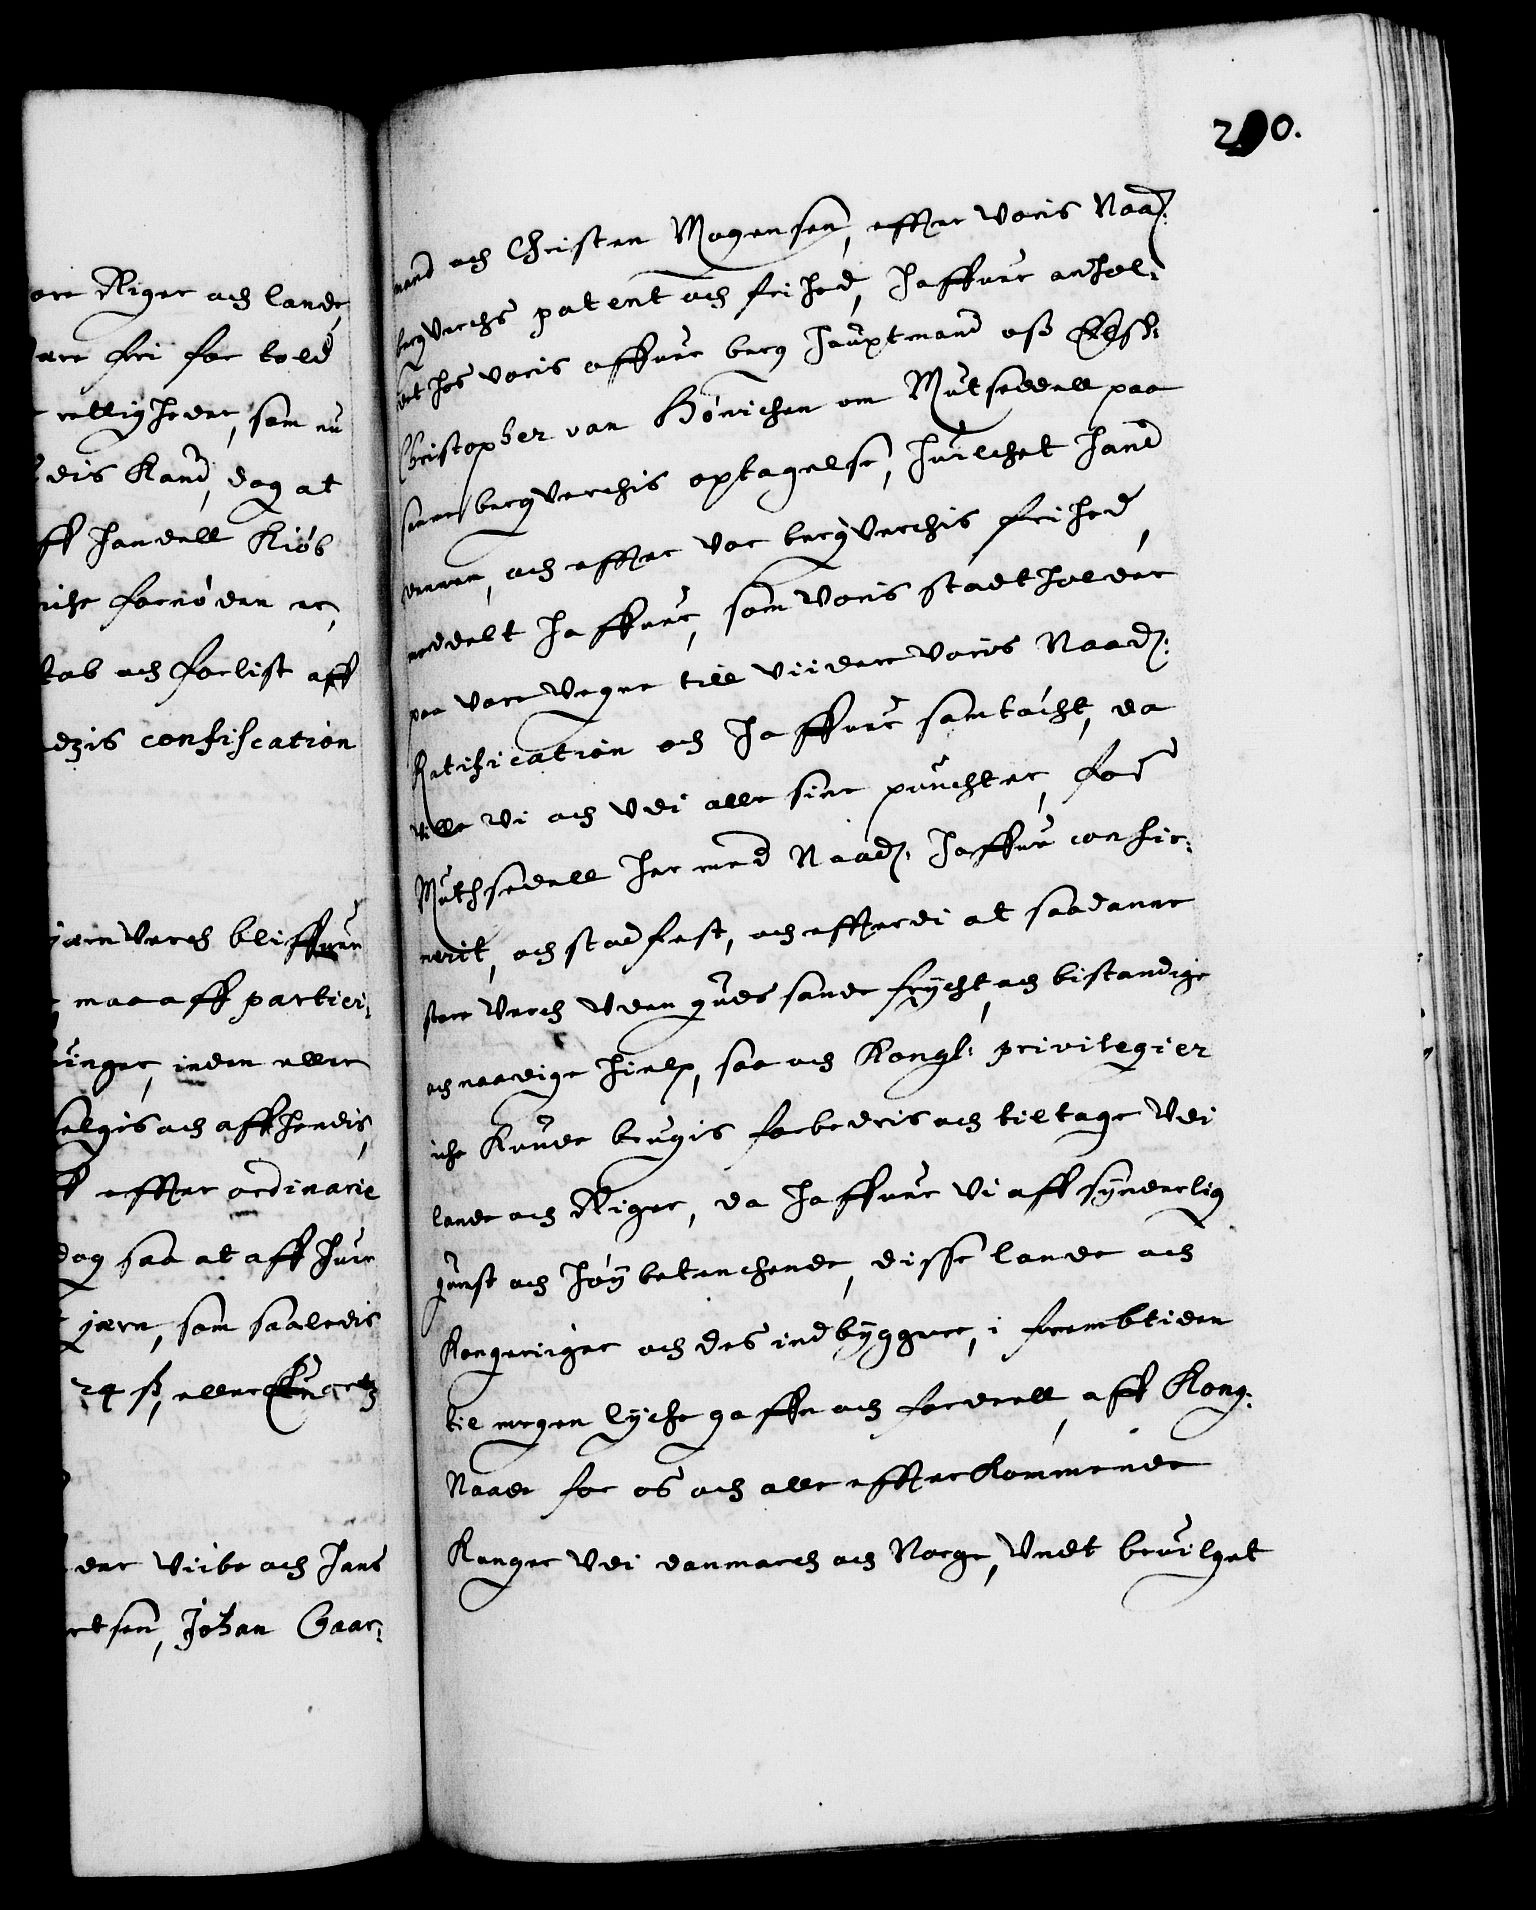 ore Riger och lande,
være fri for told
rettigheder, som nu
dis Kand, dog at
ff handell Kiøb
iche fornøden er,
tab och forlist aff
dzis confiscation
jernverch bliffuer
maa aff partici:
inger, inden eller
selgis och affhendis,
effter ordinarie
dog saa at aff huer
jern, som saaledis
24 ß, eller
der Viibe och Jens
rtsen, Johan Gaar:
290.
mand och Christen Mogensen, effter Voris Naad:
bergverchs patent och frihed, haffuer anhol:
det hos voris offuer berg hauptmand oss Elsk:
Christopher van Hønichen om Mutseddell paa
samme bergverchis optagelse, huilchet hand
dennem, och effter vor bergverchis frihed,
meddelt haffuer, som Voris stadtholder
paa vore vegne till viidere voris Naad:
Ratification och haffuer samtócht, da
Ville Vi och Vdi alle sine puncter, for:
Muthsedell her med Naad: haffue confir:
merit, och stadfest, och efftterdi at saadanne
store Verch Vden guds sande frycht, och bistandige
och naadige hielp, saa och Kongl: privilegier
iche Kunde brugis forbedris och tiltage Vdi
lande och Riger, da haffuer Vi aff synderlig
gunst och høy betenchende, disse lande och
Kongeriger och des indbyggere, i frembtiden
til megen lyche gaffn och fordeell, aff Kong:
Naade for os och alle effterkommende
Konger Vdi danmarch och Norge, Vndt beuilget